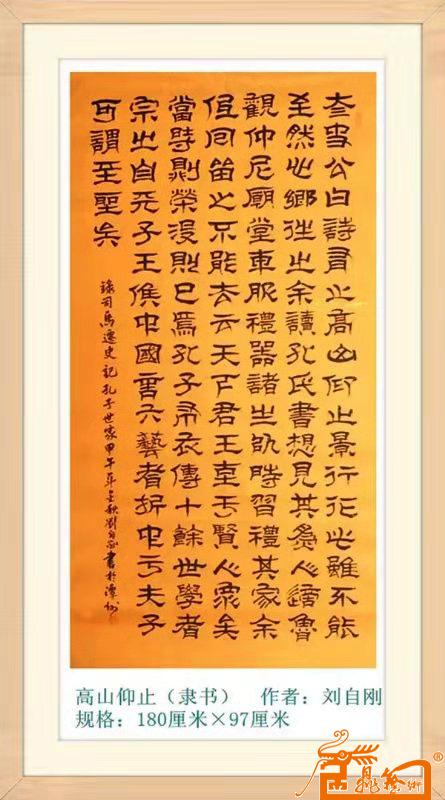 太史公曰詩有之高山仰止景行行止雖不能
至然心鄉往之余讀孔氏書想見其為人適魯
觀仲尼廟堂車服禮器諸生以時習禮其家余
低回留之不能去云天下君王至于賢人衆矣
當時則榮没則已焉孔子布衣傳十餘世學者
宗之自天子王侯中國言六藝者折中于夫子
可謂至聖矣
錄司馬遷史記孔子世家甲午年金秋劉自剛書於潭州
高山仰止（隶书） 作者：刘自刚
规格：180厘米×97厘米